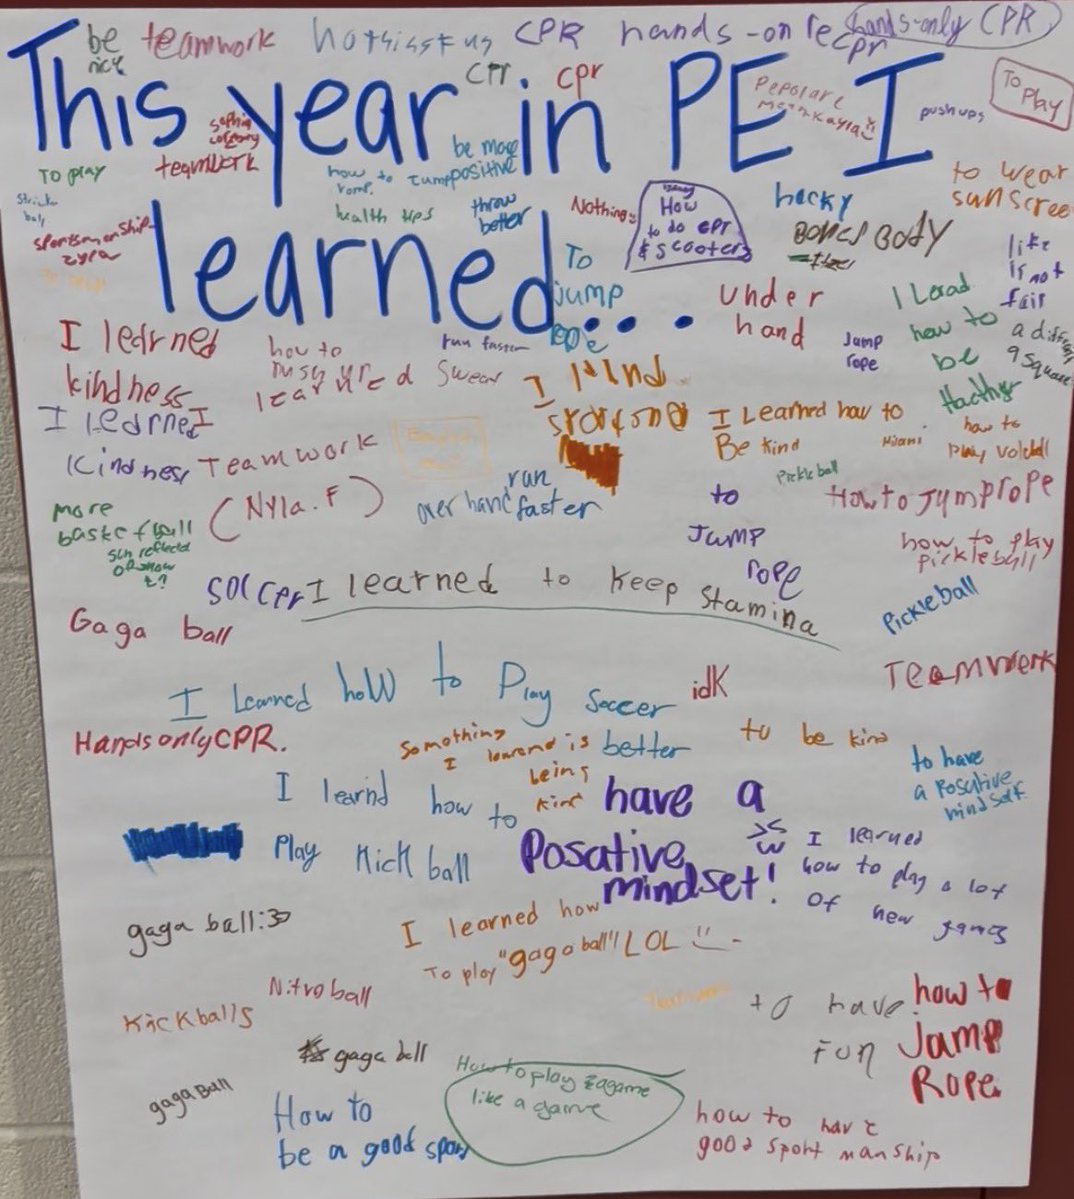 be nice
teamwork
CPR
hands-on
cpr
hands-only CPR
CPr
cpr
This year in PE I
To
Play
push ups
TO play
teamwork
how to
Jump
be more
positive
to wear
sunscree
health tips
throw
better
Nothing
How
to do CPr
& scooters
hecky
BONES BODY
sportsmanship
zyra
learned...
To
jump
rope
under
hand
I Lead
how to
be
like
is not
fair
a different
9 square
Jump
rope
I learned
kindness
how to
run faster
swear
I learned
kindness
Teamwork
(Nyla.F)
I Learned how to
Be kind
how to
play voleball
Pickleball
How to Jymprope
more
basketball
over hand
run
faster
to
Jump
rope
how to play
pickleball
soccer
I learned to keep stamina
Pickleball
Gaga ball
Teamwork
I Learned hoW to Play Soccer
idk
Hands only CPR.
Somothing
I lowrond is
being
kind
better
to be kind
to have
a Posative
mindset
I learnd how to
Play Kick ball
have a
Posative
mindset!
I learned
how to play a lot
of new games
gaga ball:3
I learned how
To play "gaga ball"! LOL
Nitroball
Kickballs
to have
Fun
how to
Jamp
Rope
gaga ball
gagaBall
How to play a game
like a game
How to
be a good spor
how to have
good sport manship